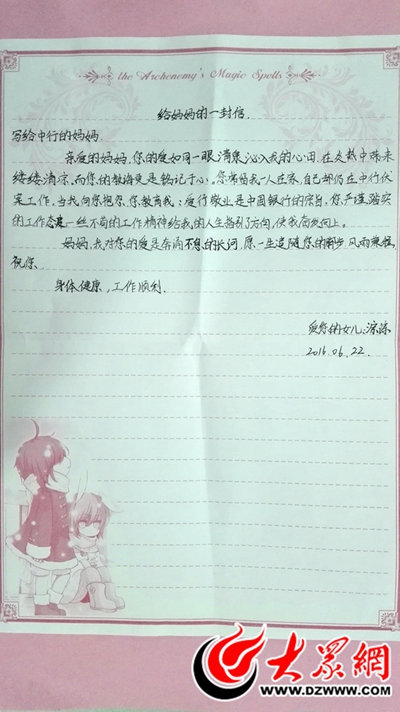 the Archenemy's Magic Spells
给妈妈的一封信
写给中行的妈妈
亲爱的妈妈,您的爱如同一眼清泉沁入我的心田,在炎热中带来
缕缕清凉,而您的教诲更是铭记于心,您常留我一人在家,自己却仍在中行伏
案工作,当我向您抱怨,您教育我:爱行敬业是中国银行的宗旨,您严谨踏实
的工作态度一丝不苟的工作精神给我的人生指引了方向,使我奋发向上。
妈妈,我对您的爱是奔涌不息的长河,愿一生追随您的脚步,风雨兼程,
祝您
身体健康,工作顺利
爱您的女儿:
2016.06.22.
大众網
WWW.DZWWW.COM